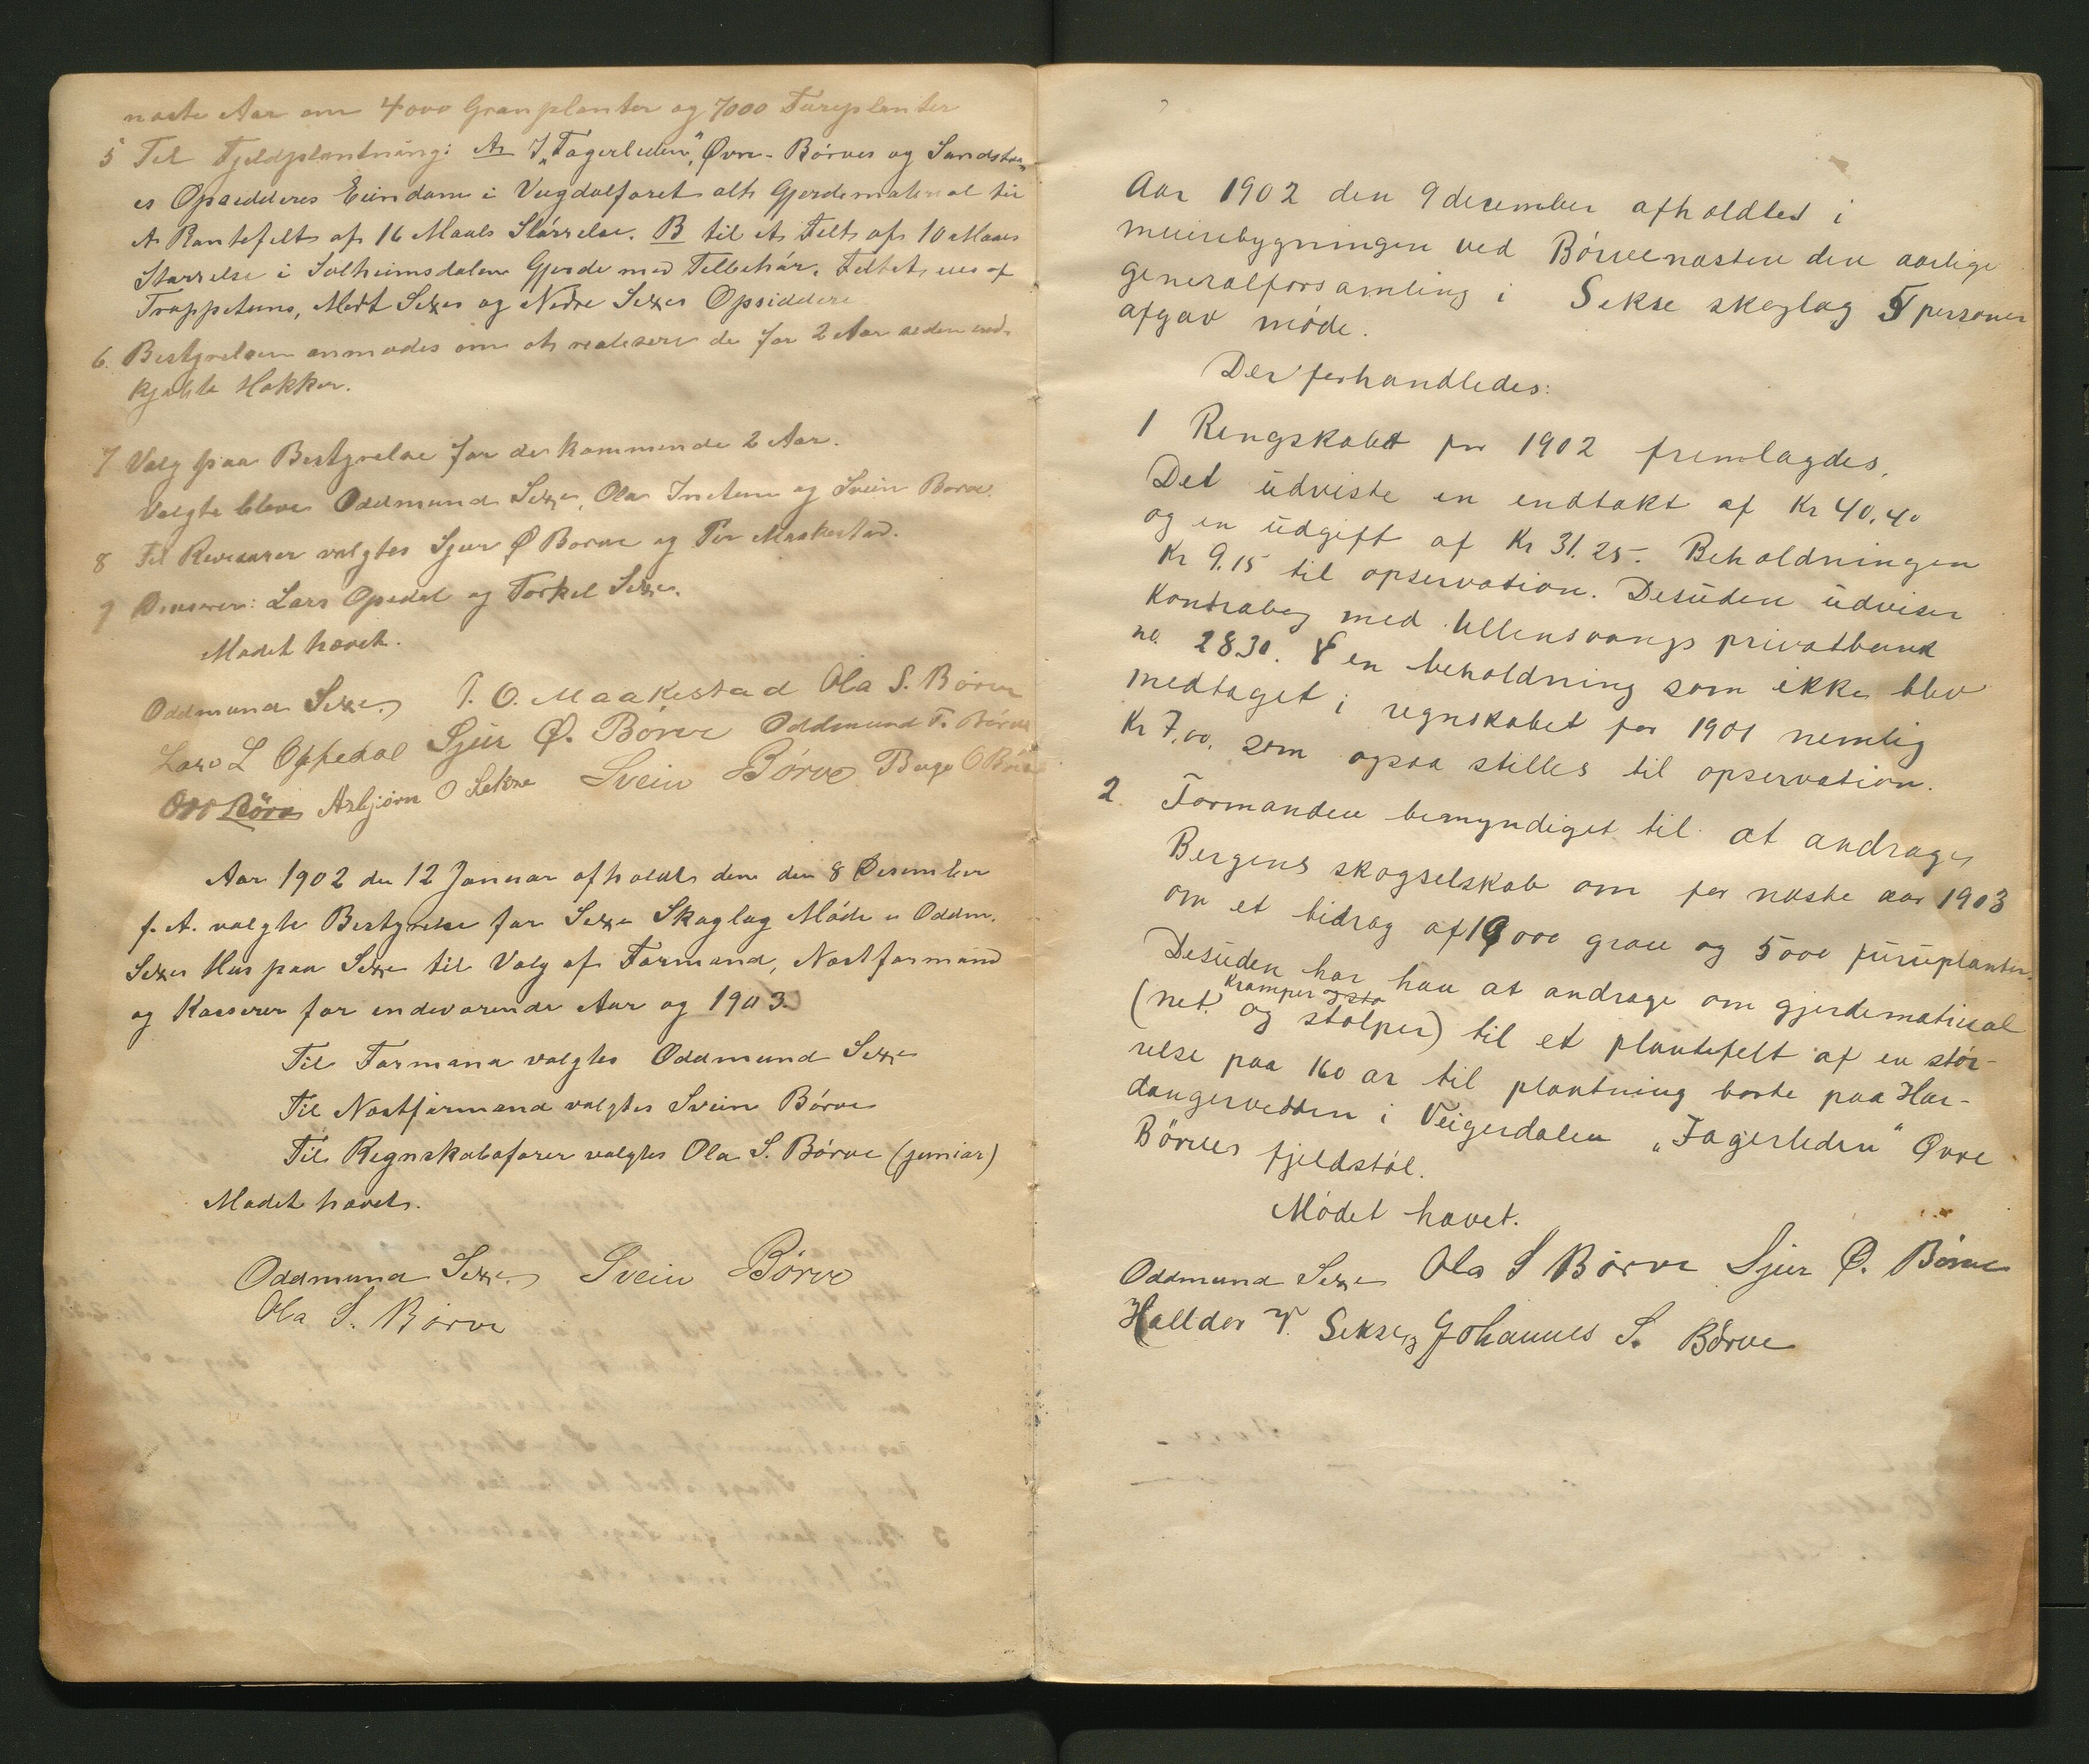 næste Aar om 4000 Granplanter og 7000 Fureplanter
5 Til Fjeldplantning: A I „Fagerlien", Øvre-Børves og
es Opsidderes Eiendom i Veigdalføret alt Gjerdemateriel til
et Kantefelt af 16 Maals Størrelse. B til et Felt af 10 Maals
Størrelse i Solheimsdalen Gjerde med Tilbehør. Feltet eies af
Trappetuns, Midt Sexes og Nedre Sexes Opsiddere
6. Bestyrelsen anmodes om at realisere de for 2 Aar siden ind-
kjøbte Hakker.
7 Valg paa Bestyrelse for de kommende 2 Aar.
Valgte bleve Oddmund Sexe, Ola Instune og Svein Børve.
8 Til Revisorer valgtes Sjur Ø Børve og Per Maakestad.
9 Lars Opedal og Torkel Sexe.
Mødet hævet.
Oddmund Sexe, P. O. Maakestad Ola S. Børve
Lars L Oppedal Sjur Ø. Børve Oddmund T. Børve
Odd Børve Asbjørn O Sekse Svein Børve Børge O Børve
Aar 1902 den 12 Januar afholdt den den 8 Desember
f. A. valgte Bestyrelse for Sexe Skoglag Møde i Oddm.
Sexes Hus paa Sexe til Valg af Formand, Næstformand
og Kasserer for indeværende Aar og 1903.
Til Formand valgtes Oddmund Sexe
Til Næstformand valgtes Svein Børve
Til Regnskabsfører valgtes Ola S. Børve (junior)
Mødet hævet.
Oddmund Sexe. Svein Børve
Ola S. Børve
Aar 1902 den 9 december afholdtes i
meieribygningen ved Børvenæsten den aarlige
generalforsamling i Sekse skoglag 5 personer
afgav møde.
Der forhandledes:
1 Rengskabet for 1902 fremlagdes.
Det udviste en endtækt af Kr 40,40
og en udgift af Kr 31.25. Beholdningen
Kr 9.15 til opservation. Desuden udviser
Kontrabog med Ullensvangs privatbank
no 2830. en beholdning som ikke blev
medtaget i regnskabet for 1901 nemlig
Kr 7,00. som ogsaa stilles til opservation.
2. Formanden bemyndiget til at andrage
Bergens skogselskab om for næste aar 1903
om et bidrag af 10000 gran og 5000 furuplanter.
Desuden har han at andrage om gjerdematrieal
(net. kramper og sto og stolper) til et plantefelt af en stør-
relse paa 160 ar til plantning borte paa Har-
dangervidden i Veigerdalen „Fagerliden" Øvre
Børves fjeldstøl.
Mødet hævet.
Oddmund Sexe Ola S Børve Sjur Ø. Børve
Halldor T. Sekse, Johannes S. Børve